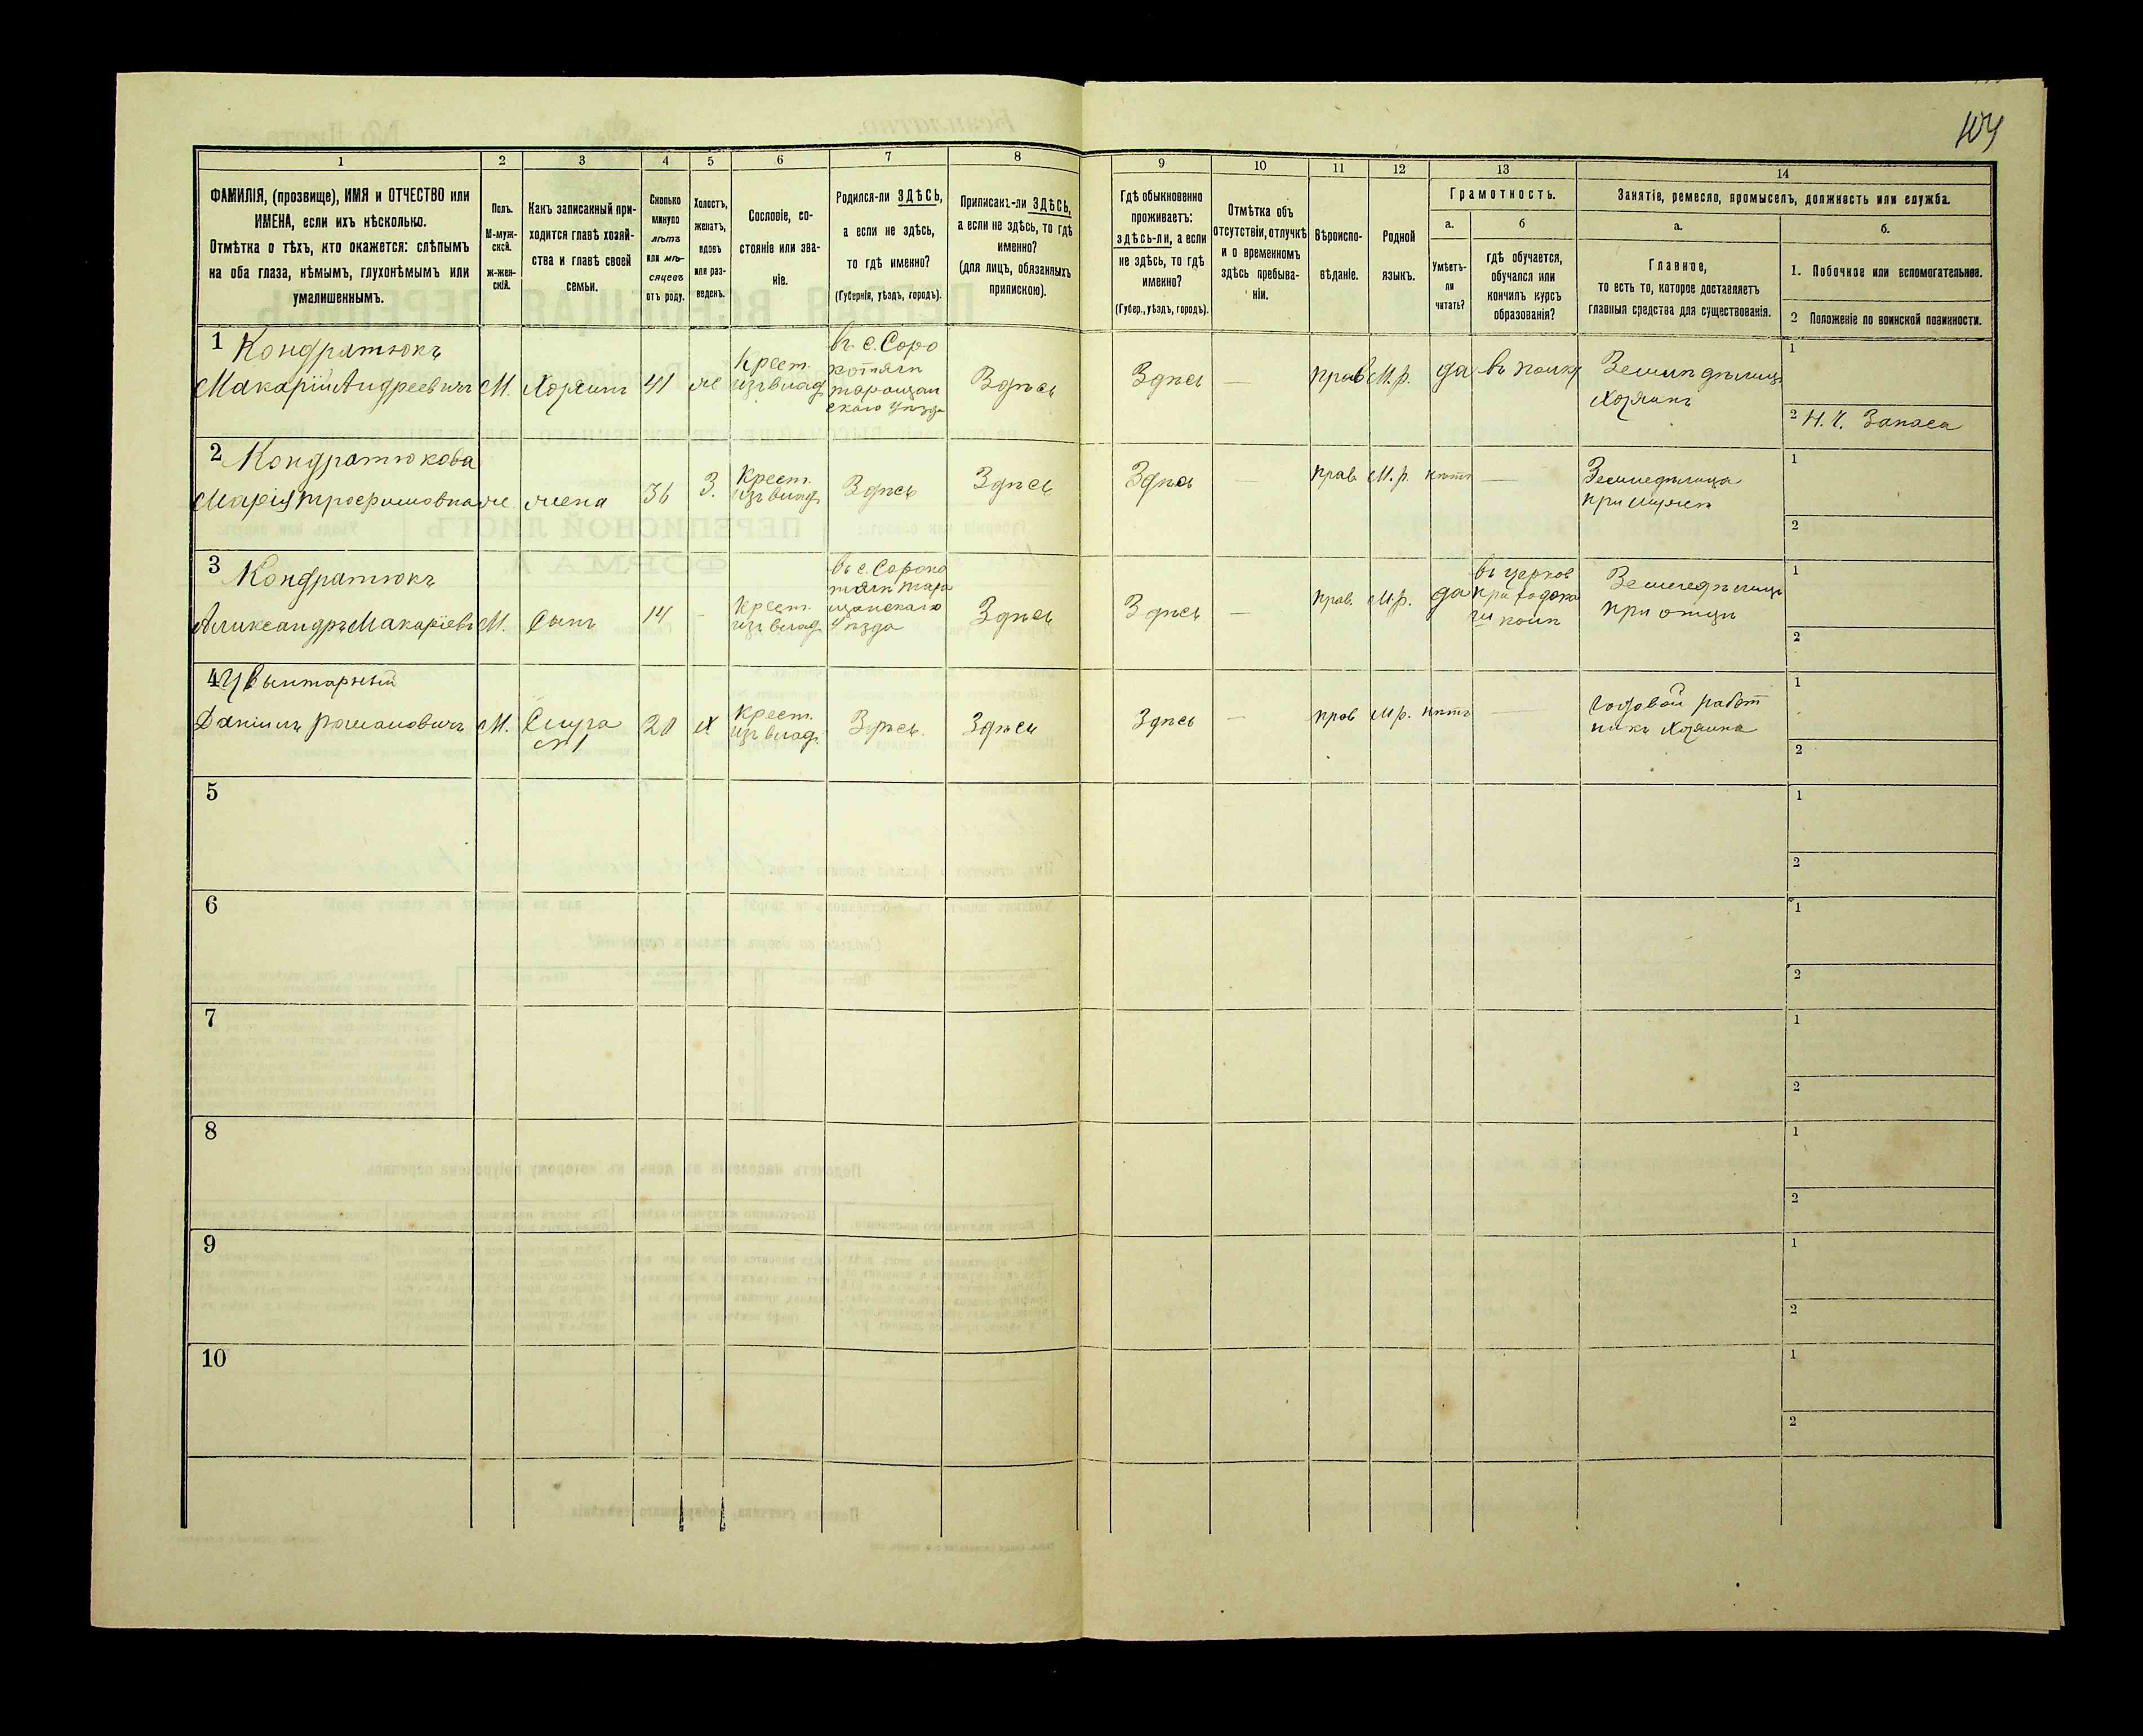 104
1 2 3 4 5 6 7 8 9 10 11 12 13 14
ФАМИЛІЯ, (прозвище), ИМЯ и ОТЧЕСТВО или
ИМЕНА, если ихъ нѣсколько.
Отмѣтка о тѣхъ, кто окажется: слѣпымъ
на оба глаза, нѣмымъ, глухонѣмымъ или
умалишеннымъ.
Полъ.
М-муж-
ской.
ж-жен-
скій.
Какъ записанный при-
ходится главѣ хозяй-
ства и главѣ своей
семьи.
Сколько
минуло
лѣтъ
или мѣ-
сяцевъ
отъ роду.
Холостъ,
женатъ,
вдовъ
или раз-
веденъ.
Сословіе, со-
стояніе или зва-
ніе.
Родился-ли ЗДѢСЬ,
а если не здѣсь,
то гдѣ именно?
(Губернія, уѣздъ, городъ).
Приписанъ-ли ЗДѢСЬ,
а если не здѣсь, то гдѣ
именно?
(для лицъ, обязанныхъ
припискою).
Гдѣ обыкновенно
проживаетъ:
здѣсь-ли, а если
не здѣсь, то гдѣ
именно?
(Губер., уѣздъ, городъ).
Отмѣтка объ
отсутствіи, отлучкѣ
и о временномъ
здѣсь пребыва-
ніи.
Вѣроиспо-
вѣданіе.
Родной
языкъ.
Грамотность.
а.
Умѣетъ-
ли
читать?
б
гдѣ обучается,
обучался или
кончилъ курсъ
образованія?
Занятіе, ремесло, промыселъ, должность или служба.
а.
Главное,
то есть то, которое доставляетъ
главныя средства для существованія.
б.
1. Побочное или вспомогательное.
2 Положеніе по воинской повинности.
1 Кондратюкъ
Макарій Андреевичъ
М.
Хозяинъ
41
же
Крест.
изъ влад
въ с. Соро
котяги
таращан
скаго уѣзда
Здѣсь
Здѣсь
—
прав
М. р.
да
въ полку
Земледѣлецъ
Хозяинъ
1
2 Н. Ч. Запаса
2 Кондратюкова
Марія Трофимовна
же
жена
36
З.
Крест.
изъ влад
Здѣсь
Здѣсь
Здѣсь
—
прав
М. р.
нѣтъ
—
Земледѣлица
при мужѣ
1
2
3 Кондратюкъ
Александръ Макаріевъ
М.
Сынъ
14
-
Крест.
изъ влад
въ с. Сороко
тяги тара
щанскаго
Уѣзда
Здѣсь
Здѣсь
—
прав.
М. р.
да
въ церков
приходско
й школ
Земледѣлецъ
при отцѣ
1
2
4 Цвынтарный
Даніилъ Романовичъ
М.
Слуга
№1
20
Х
Крест.
изъ влад.
Здѣсь
Здѣсь
Здѣсь
—
прав
М. р.
нѣтъ
—
годовой работ
никъ Хозяина
1
2
5
1
2
6
1
2
7
1
2
8
1
2
9
1
2
10
1
2